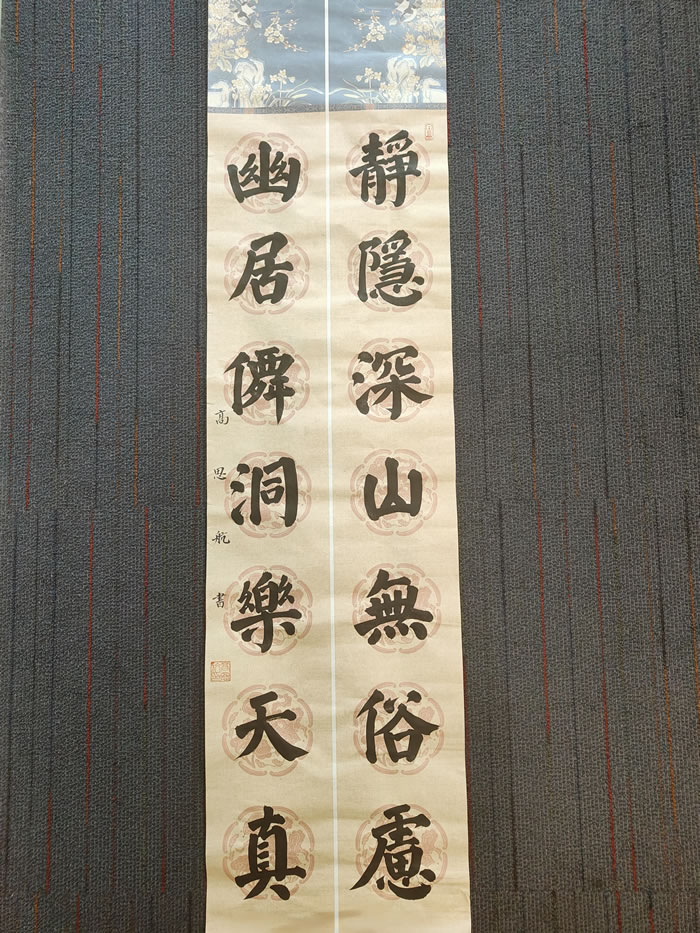 靜隱深山無俗慮
幽居僻洞樂天真
高思航書